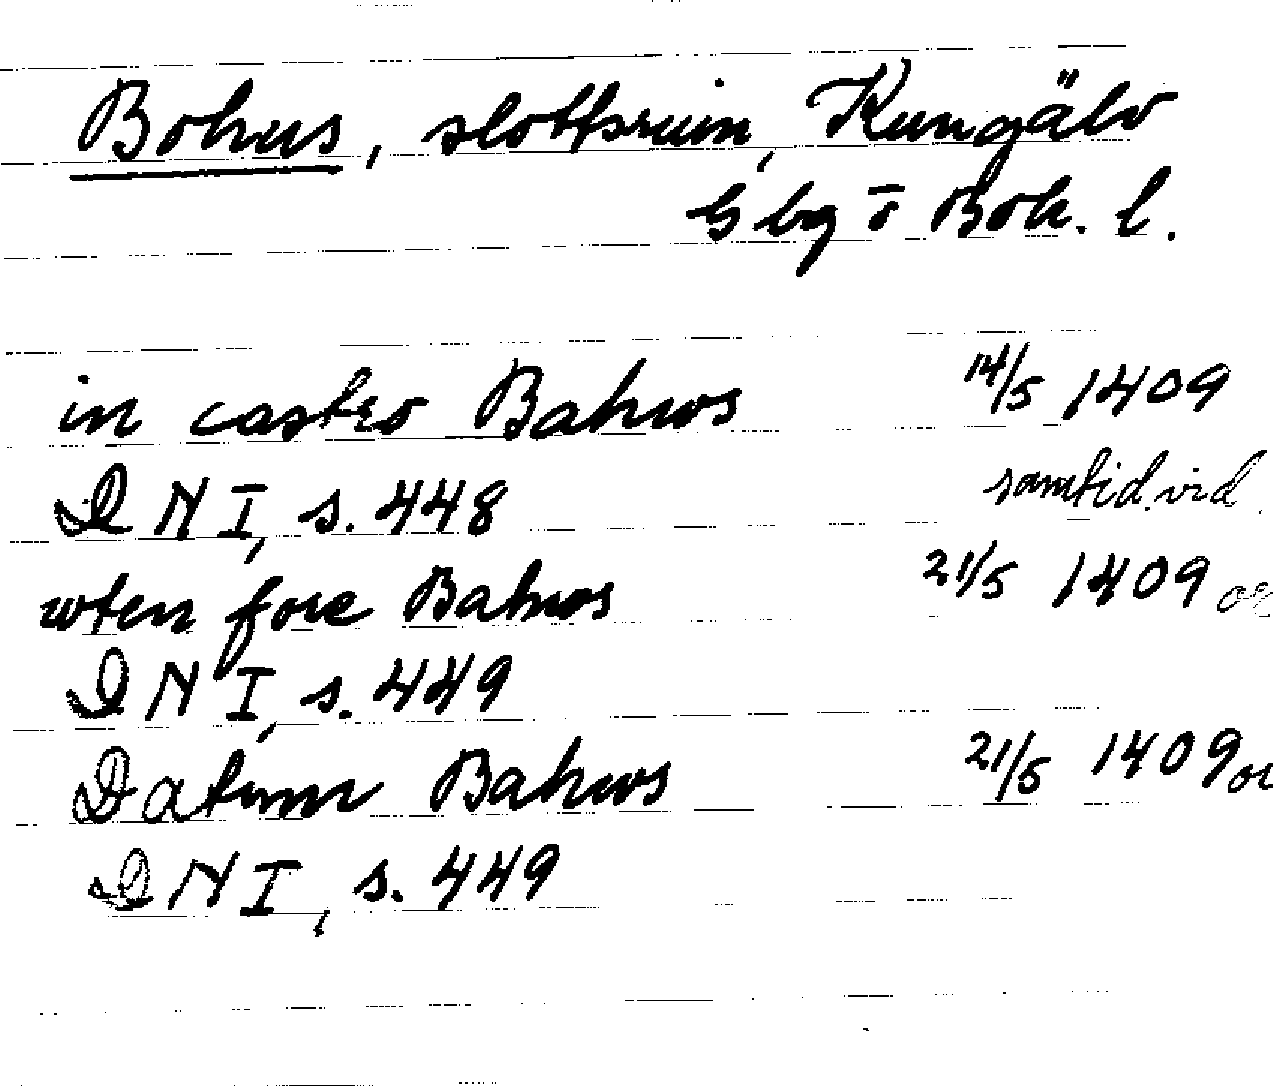 Bohus, slottsruin, Kungälv
Gbg o Boh. l.
in castro Bahws 14/5 1409
DN I, s. 448 samtid. vid.
wten fore Bahws 21/5 1409 or
DN I, s. 449
Datum Bahws 21/5 1409 or
DN I, s. 449